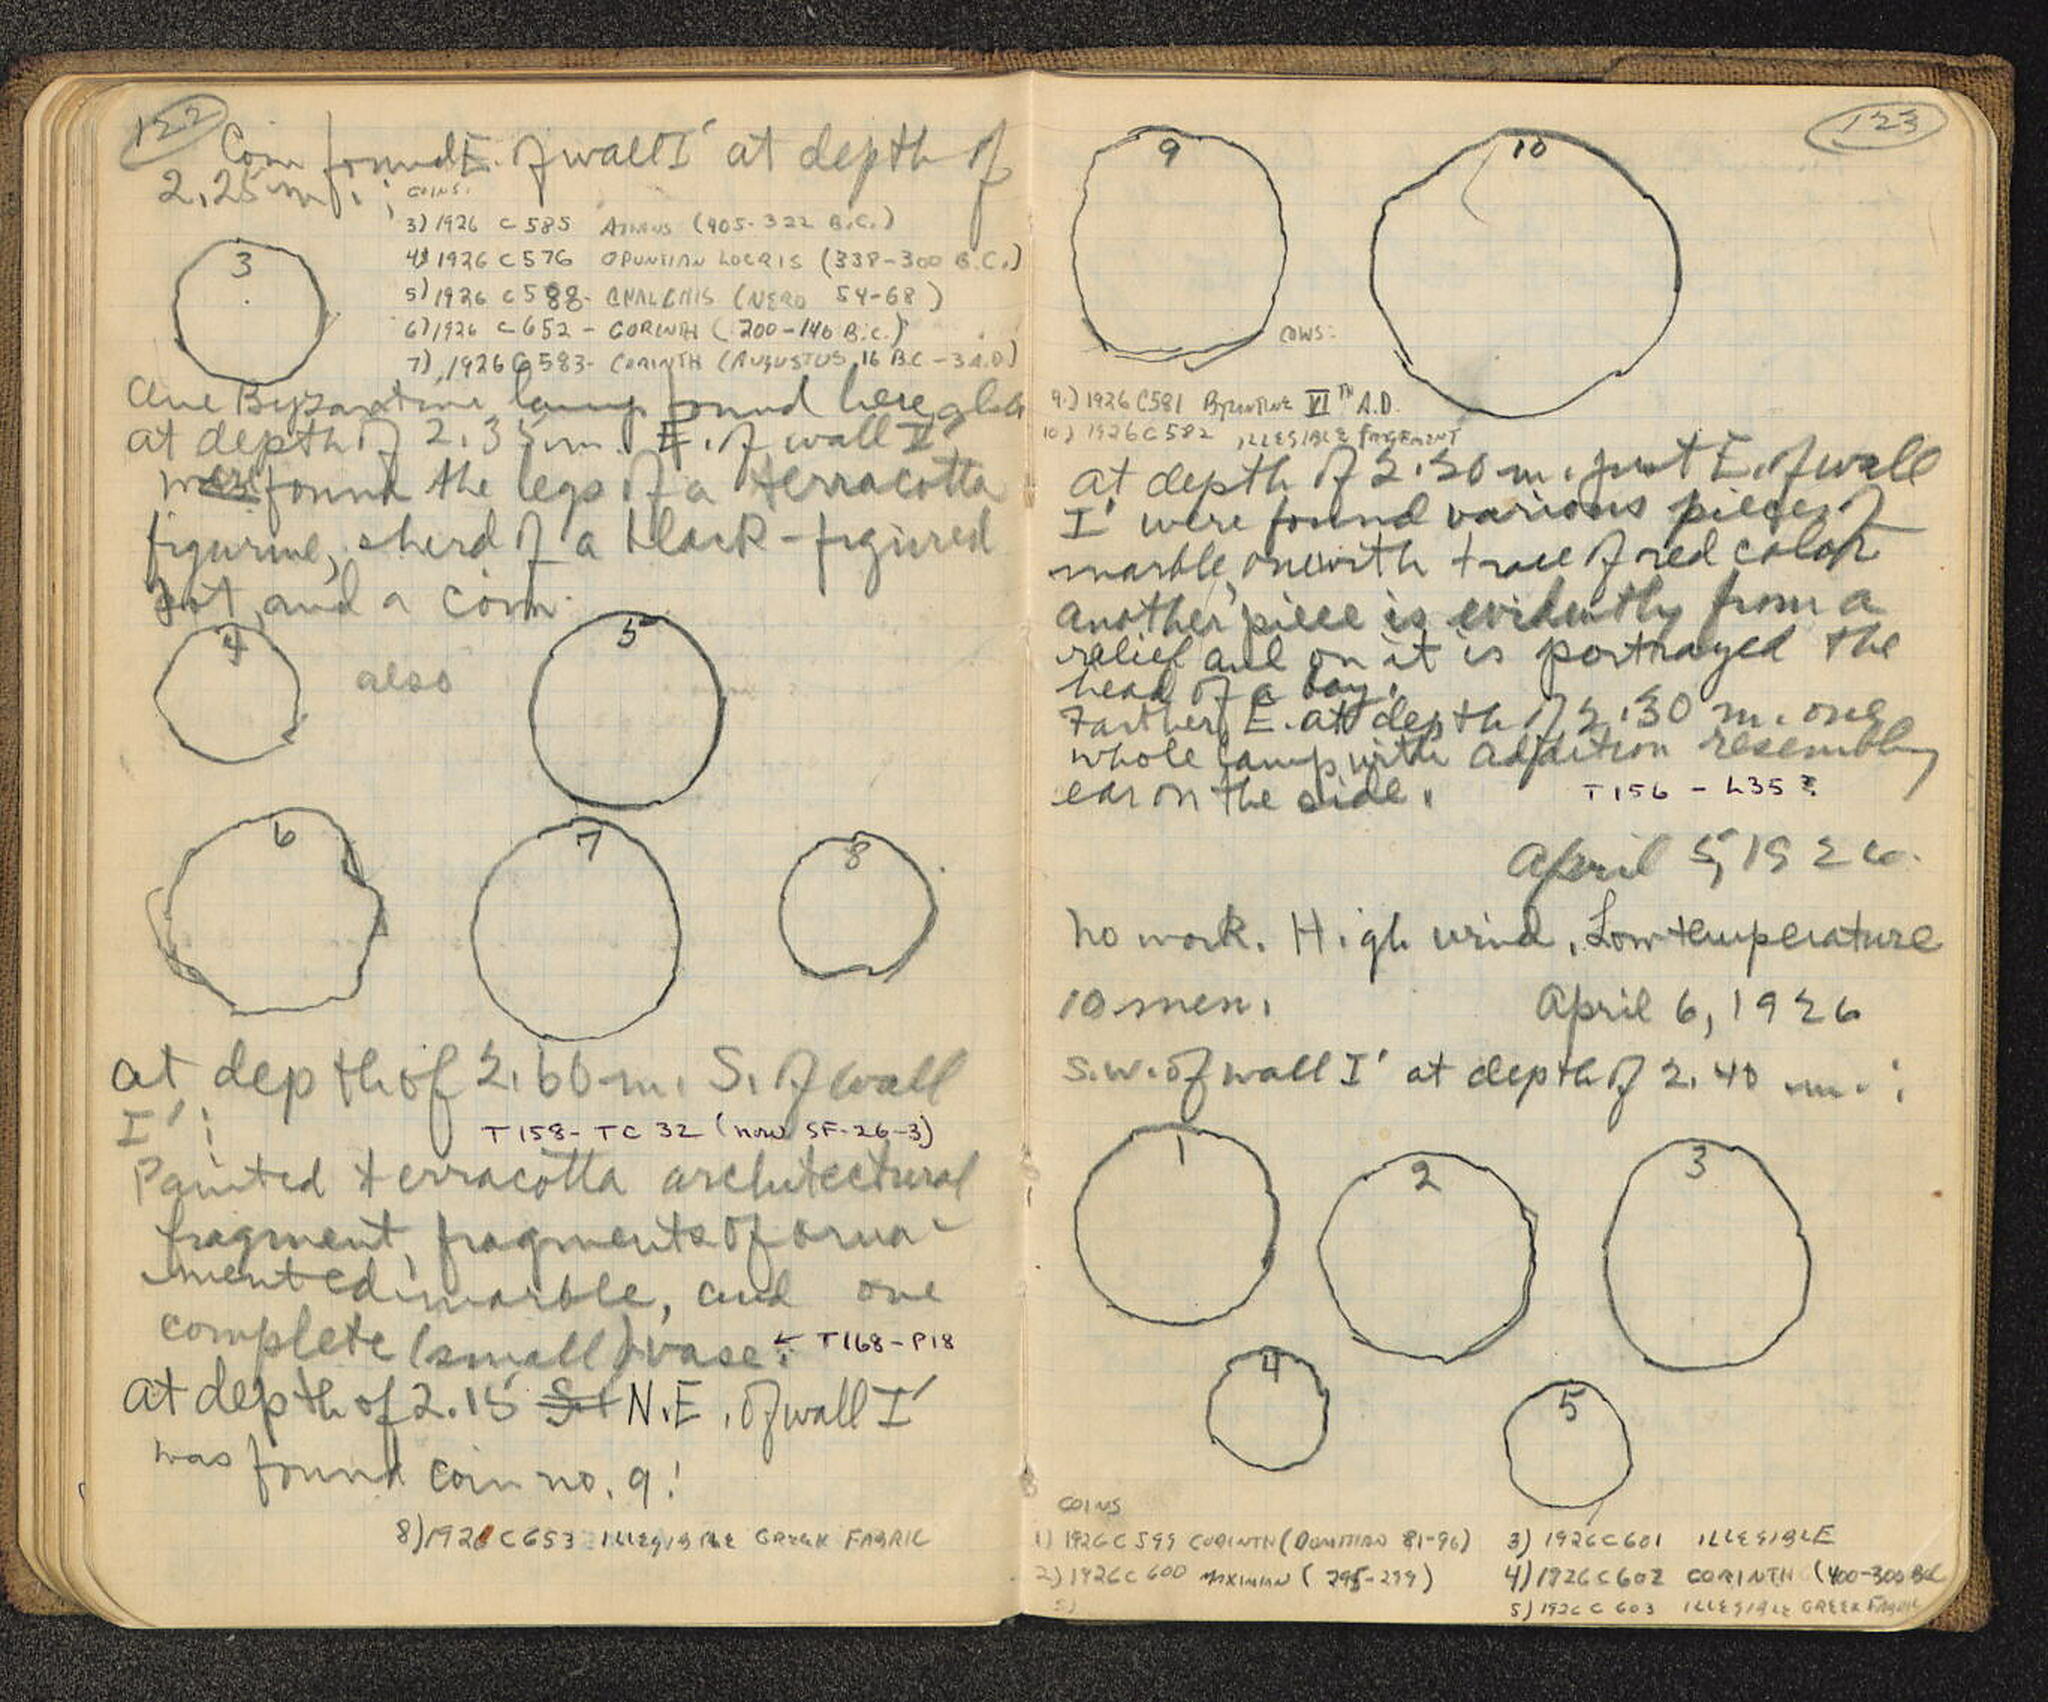 122
Coin found E. of wall I' at depth of
2.25 m. :
COINS:
3) 1926 C 585 ATHENS (405-322 B.C.)
4) 1926 C 576 OPUNTIAN LOCRIS (338-300 B.C.)
5) 1926 C 588- CHALCHIS (NERO 54-68)
6) 1926 C 652 - CORINTH (200-146 B.C.)
7) 1926 C 583- CORINTH (AUGUSTUS, 16 B.C - 3 A.D)
3
One Byzantine lamp found here also
at depth of 2.35 m. E. of wall I'
were found the legs of a terracotta
figurine, sherd of a black-figured
pot, and a coin.
4
also
5
6
7
8
at depth of 2.60 m. S. of wall
I' :
T158- TC 32 (now SF-26-3)
Painted terracotta architectural
fragment, fragments of orna-
mented marble, and one
complete (small) vase. ← T168-P18
At depth of 2.15 N.E. of wall I'
was found coin no. 9!
8) 1926 C 653 ILLEGIBLE GREEK FABRIC
123
9
10
COINS:
9.) 1926 C581 BYZANTINE VI TH A.D.
10) 1926 C 582 ILLEGIBLE FRAGEMENT
At depth of 2.20 m. just E. of wall
I' were found various pieces of
marble, one with trace of red color
another piece is evidently from a
relief and on it is portrayed the
head of a boy.
Farther E. at depth of 2.30 m. one
whole lamp with addition resembling
ear on the side.
T156 - L35 ?
April 5, 1926.
No work. High wind, Low temperature
10 men.
April 6, 1926
S.W. of wall I' at depth of 2.40 m. :
1
2
3
4
5
COINS
1) 1926 C 599 CORINTH (DOMITIAN 81-96)
2) 1926 C 600 MAXIMIAN (295-299)
5)
3) 1926 C 601 ILLEGIBLE
4) 1926 C 602 CORINTH (400-300 BC
5) 1926 C 603 ILLEGIBLE GREEK FABRIC